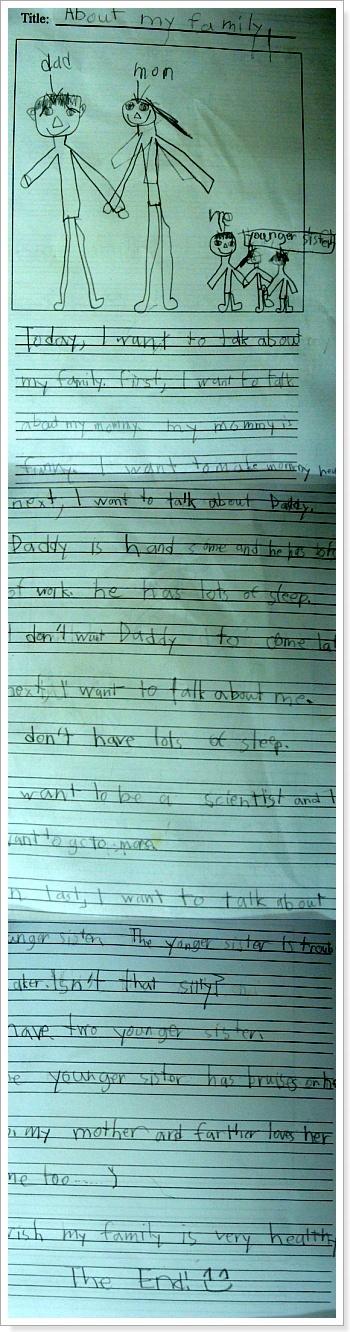 Title: About my family
dad
mom
me
younger sister
Today, I want to talk about
my family. first, I want to talk
about my mommy. my mommy is
funny. I want to make mommy
next, I want to talk about Daddy.
Daddy is handsome and he has lots
of work. he has lots of sleep.
I don't want Daddy to come
next, I want to talk about me.
don't have lots of sleep.
want to be a scientist and I
want to go to mars.
n last, I want to talk about
unger sister. The yonger sister is troub
aker. Isn't that silly?
have two younger sister.
e younger sister has bruises on he
my mother and farther loves her
me too......)
ish my family is very healthy
The End!